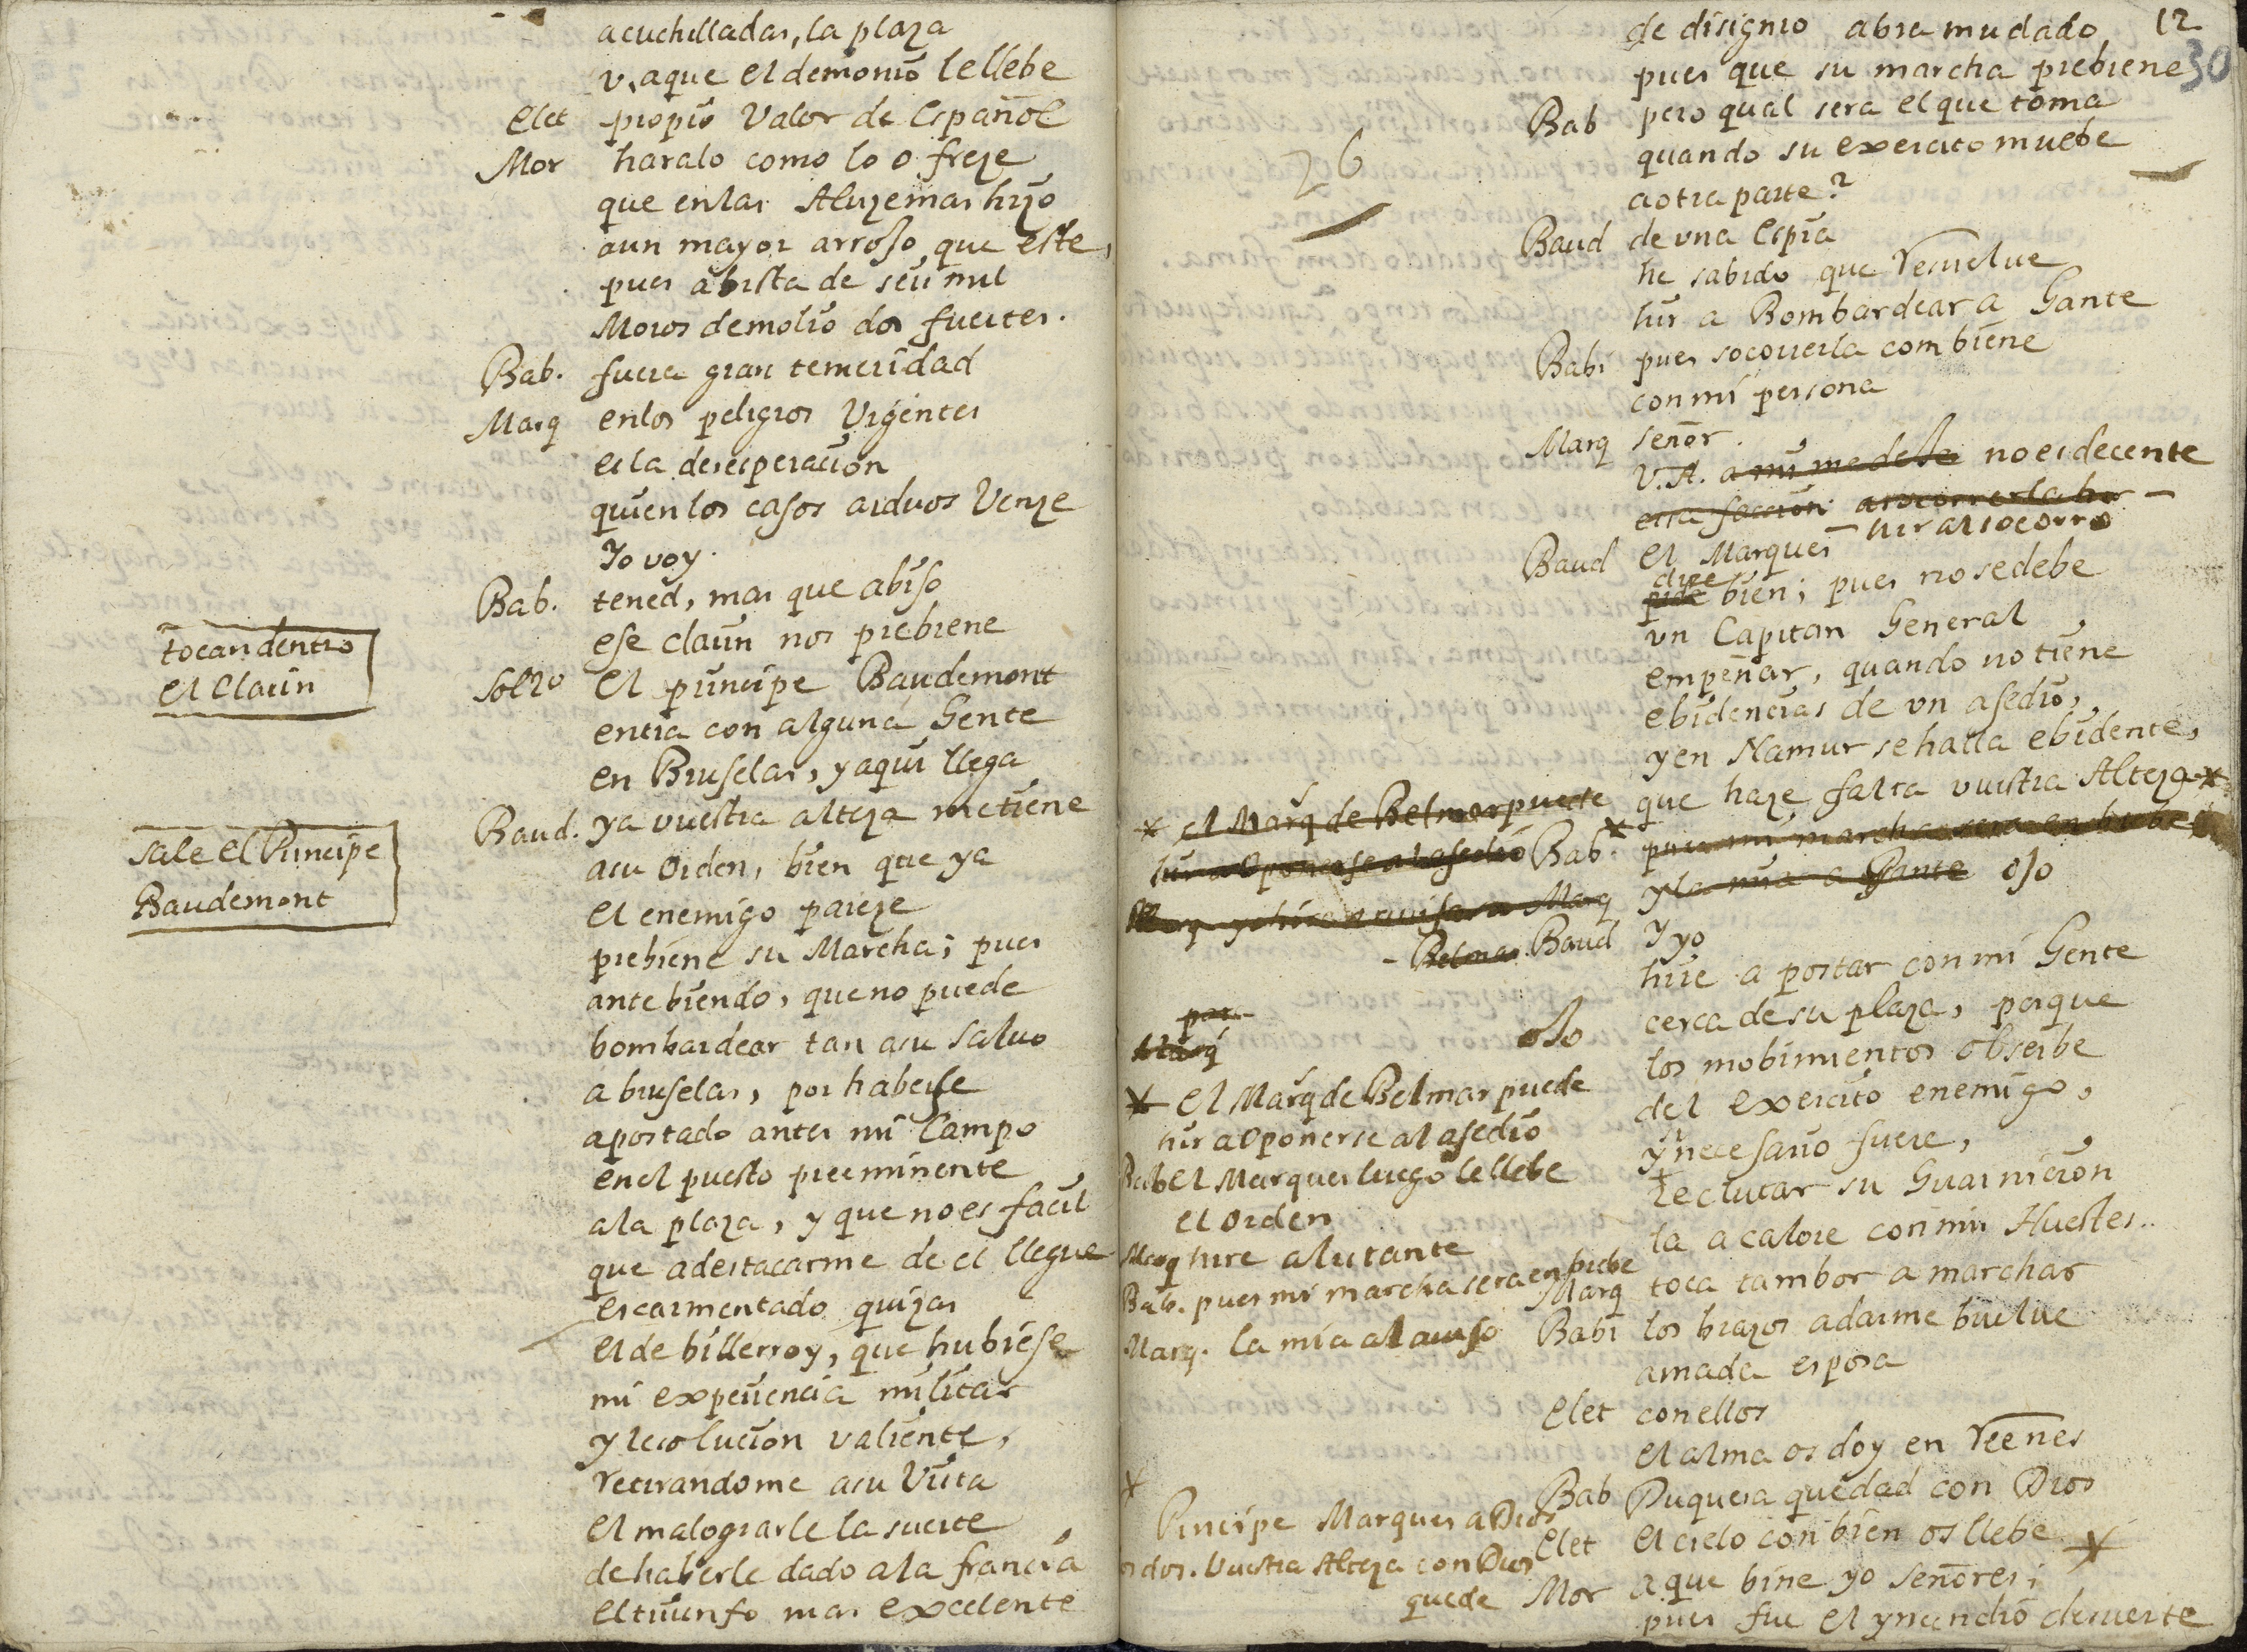 acuchilladas, la plaza
v, a que el demonio le llebe
Elet propio Valor de Español
Mor haralo como lo ofreze
que en las Aluzemas hizo
aun mayor arrojo que este,
pues abista de seis mil
Moros demolio dos fuertes.
Bab. fuera gran temeridad
Marq en los peligros Urgentes
es la desesperacion
quien los casos arduos Venze
Yo voy.
Bab. tened, mas que abiso
ese clarin nos prebiene
tocan dentro
el Clarin
Soldo el principe Baudemont
entra con alguna Gente
en Bruselas, y aqui llega
Baud. ya vuestra alteza me tiene
sale el Principe
Baudemont
a su orden, bien que ya
el enemigo pareze
prebiene su Marcha; pues
antebiendo, que no puede
bombardear tan a su salvo
a bruselas, por haberse
apostado antes mi Campo
en el puesto preeminente
a la plaza, y que no es facil
que a destacarme de el llegue
escarmentado quizas
el de billerroy, que hubiese
mi experiencia militar
y resolucion valiente,
retirandome a su Vista
el malograrle la suerte
de haberle dado a la francia
el triunfo mas excelente
12
30
26
de disignio abra mudado
pues que su marcha prebiene
Bab pero qual sera el que toma
quando su exercito muebe
a otra parte?
Baud de una Espia
he sabido que resuelve
hir a Bombardear a Gante
Bab. pues socorrerla combiene
con mi persona
Marq señor.
V.A. a mi me deje no es decente
esa faccion a socorrerla
hir al socorro
Baud el Marques
dize
pide bien; pues no se debe
un Capitan General
empeñar, quando no tiene
ebidencias de un asedio,
y en Namur se halla ebidente,
que haze falta vuestra Alteza *
* el Marq de Belmar puede
hir a oponerse al asedio
Bab. * pues mi marcha sera en brebe
Marq y la mia a Gante ojo
Belmar
Baud Y yo
hire a postar con mi Gente
cerca de su plaza, porque
los mobimientos obserbe
del exercito enemigo,
y si necesario fuere,
reclutar su Guarnicion
la acalore con mis Huestes..
por
Marq
ojo
* el Marq de Belmar puede
hir a oponerse al asedio
Bab el Marques luego le llebe
el orden
Marq hire al instante
Bab. pues mi marcha sera en brebe
Marq. la mia al aviso
Marq toca tambor a marchar
Babi los brazos a darme buelve
amada esposa
Elet con ellos
el alma os doy en reenes
Bab Duquesa quedad con Dios
Elet el cielo con bien os llebe *
*
Principe Marques a Dios
os dos. Vuestra Alteza con Dios
quede
Mor a que bine yo señores;
pues fue el yncendio de suerte